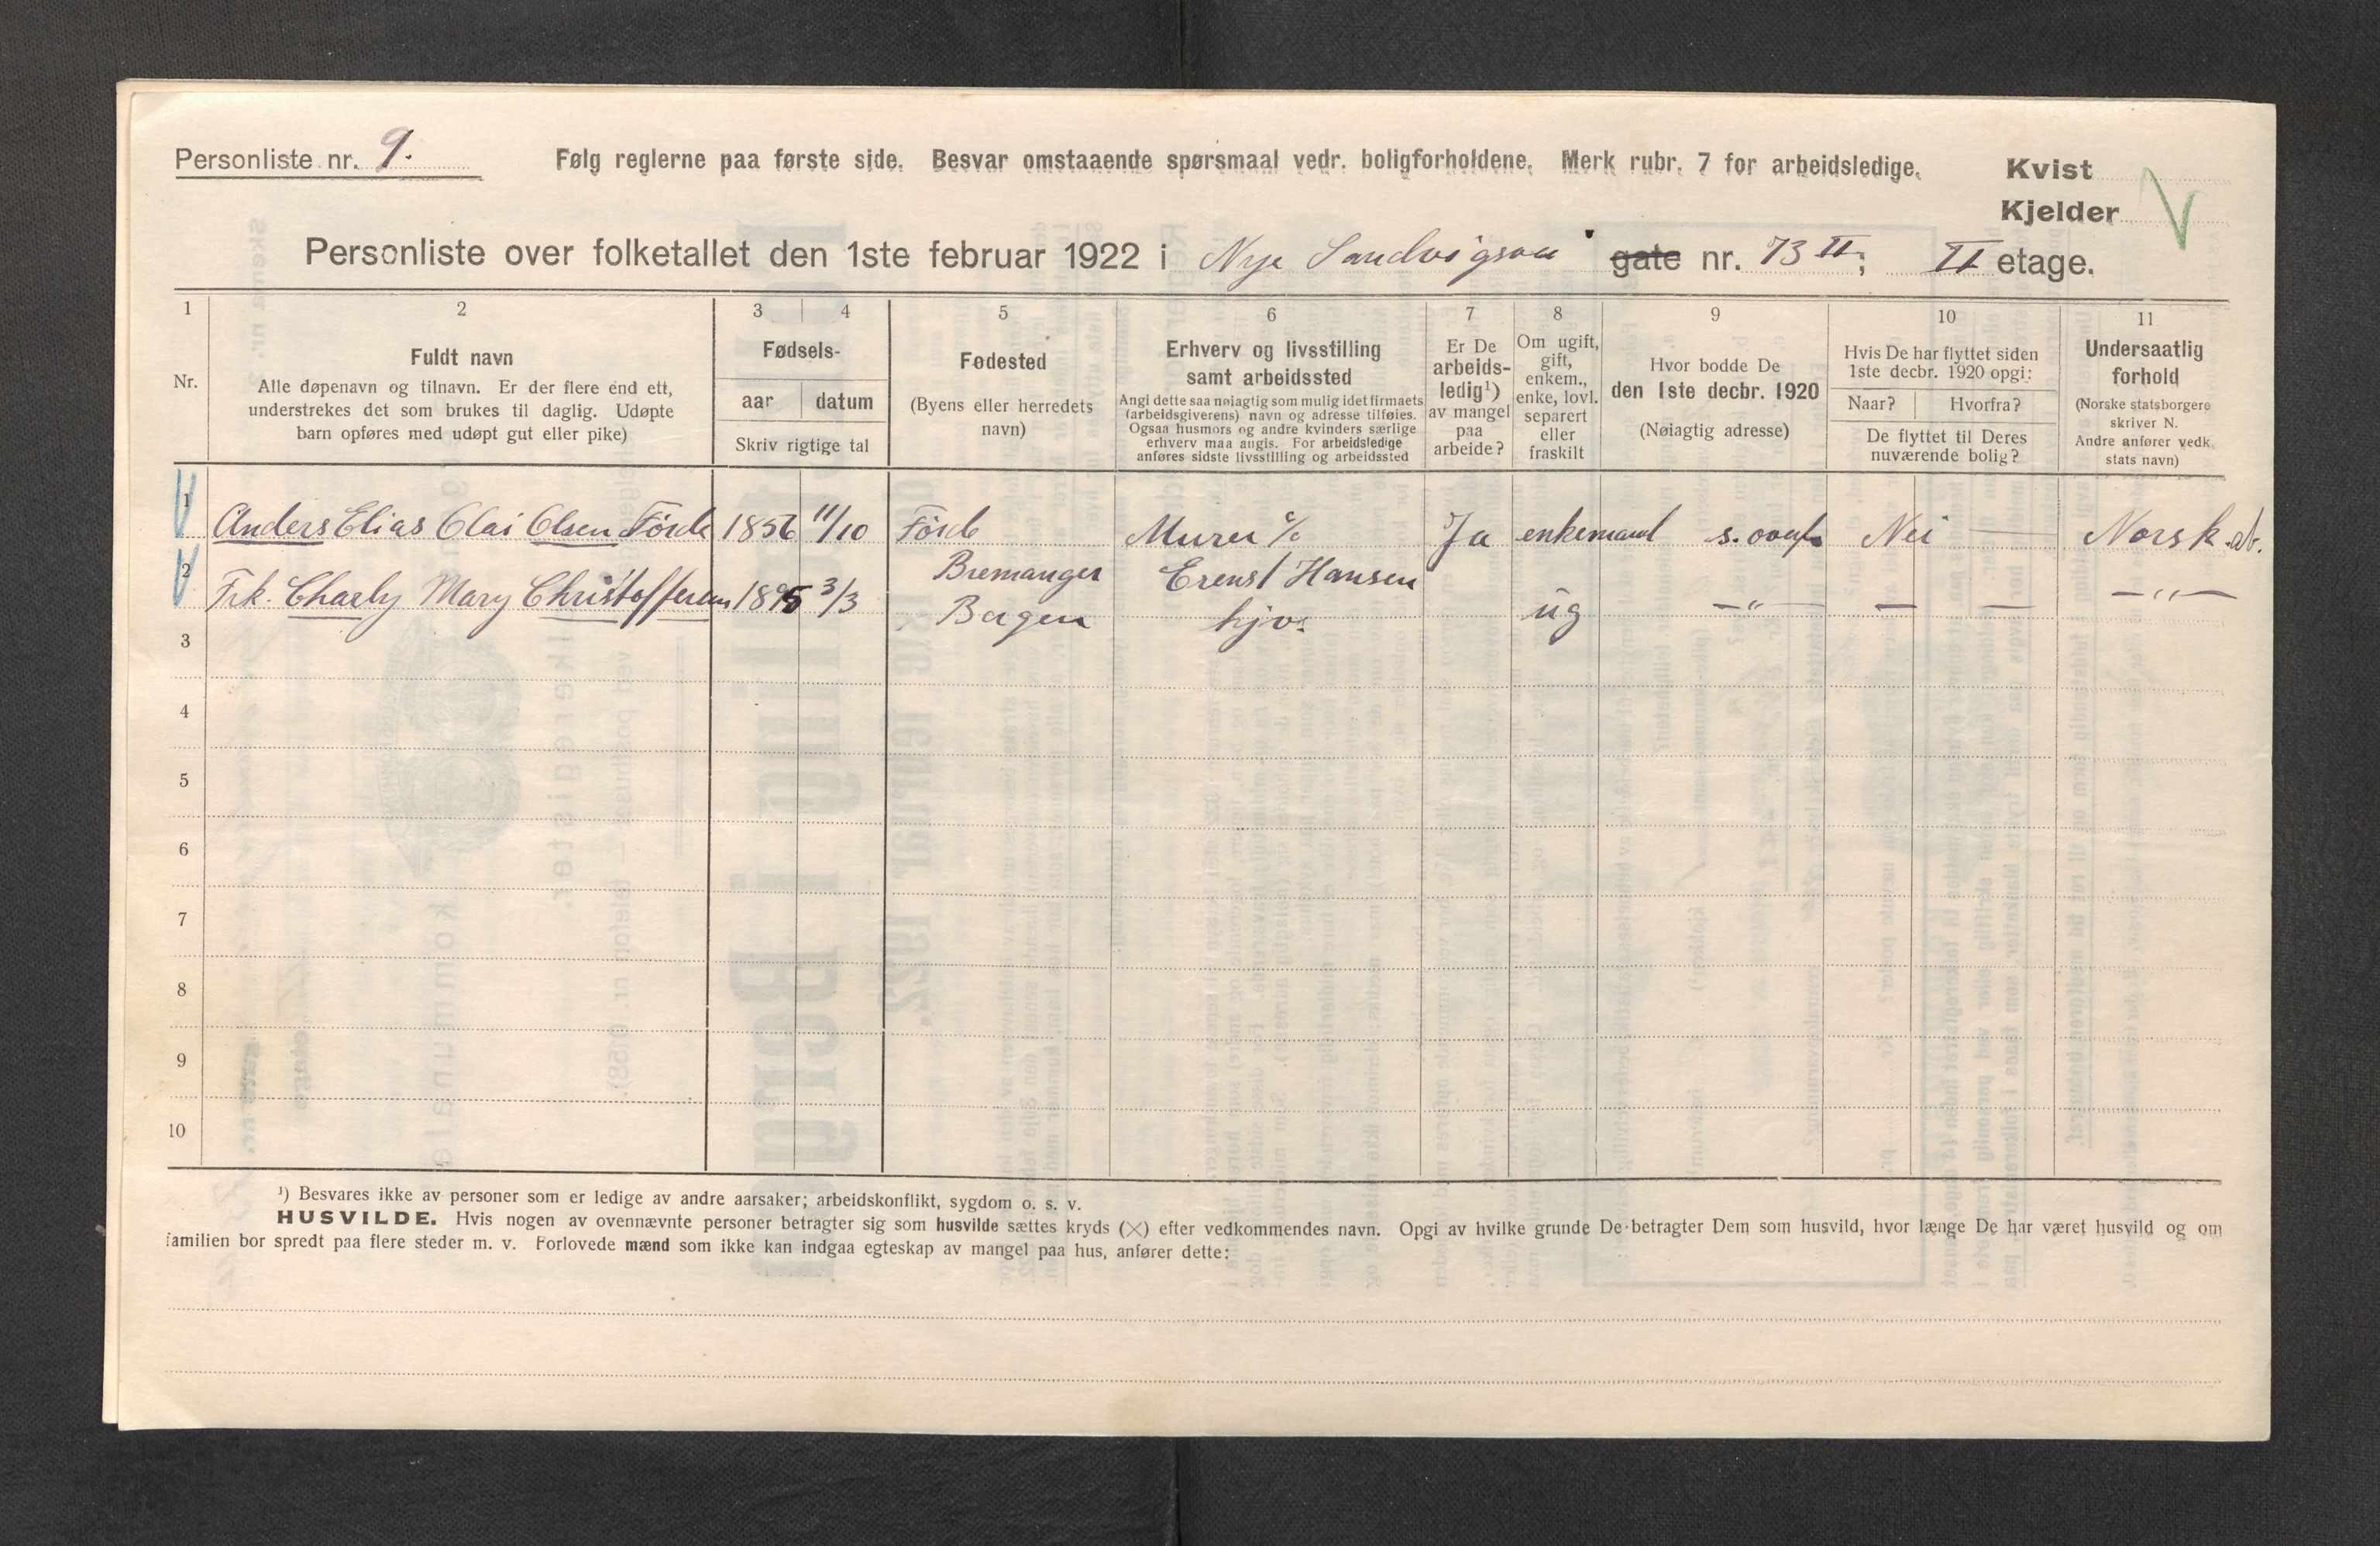 Personliste nr. 9.
Følg reglerne paa første side. Besvar omstaaende spørsmaal vedr. boligforholdene. Merk rubr. 7 for arbeidsledige.
Kvist
Kjelder
Personliste over folketallet den 1ste februar 1922 i Nye Sandvigsvei gate nr. 73 II; II etage.
1 2 3 4 5 6 7 8 9 10 11
Nr.
Fuldt navn
Alle døpenavn og tilnavn. Er der flere end ett,
understrekes det som brukes til daglig. Udøpte
barn opføres med udøpt gut eller pike)
Fødsels-
aar datum
Skriv rigtige tal
Fødested
(Byens eller herredets
navn)
Erhverv og livsstilling
samt arbeidssted
Angi dette saa nøiagtig som mulig idet firmaets
(arbeidsgiverens) navn og adresse tilføies.
Ogsaa husmors og andre kvinders særlige
erhverv maa angis. For arbeidsledige
anføres sidste livsstilling og arbeidssted
Er De
arbeids-
ledig¹)
av mangel
paa
arbeide?
Om ugift,
gift,
enkem.,
enke, lovl.
separert
eller
fraskilt
Hvor bodde De
den 1ste decbr. 1920
(Nøiagtig adresse)
Hvis De har flyttet siden
1ste decbr. 1920 opgi:
Naar? Hvorfra?
De flyttet til Deres
nuværende bolig?
Undersaatlig
forhold
(Norske statsborgere
skriver N.
Andre anfører vedk.
stats navn)
1 Anders Elias Olai Olsen Förde 1856 11/10 Förde Murer c/o Ja enkemand s. ovenf. Nei — Norsk
Bremanger Erenst Hansen
2 Frk. Charly Mary Christoffersen 1895 3/3 Bergen hjv. ug —"— — — —"—
3
4
5
6
7
8
9
10
¹) Besvares ikke av personer som er ledige av andre aarsaker; arbeidskonflikt, sygdom o. s. v.
HUSVILDE. Hvis nogen av ovennævnte personer betragter sig som husvilde sættes kryds (X) efter vedkommendes navn. Opgi av hvilke grunde De betragter Dem som husvild, hvor længe De har været husvild og om
familien bor spredt paa flere steder m. v. Forlovede mænd som ikke kan indgaa egteskap av mangel paa hus, anfører dette: